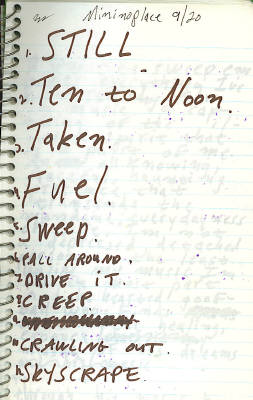 Miminoplace 9/20
1. STILL
2. Ten to Noon.
3. Taken.
4. Fuel.
5. Sweep.
6. FALL AROUND.
7. DRIVE IT.
8. CREEP
9.
10. CRAWLING OUT.
11. SKYSCRAPE.